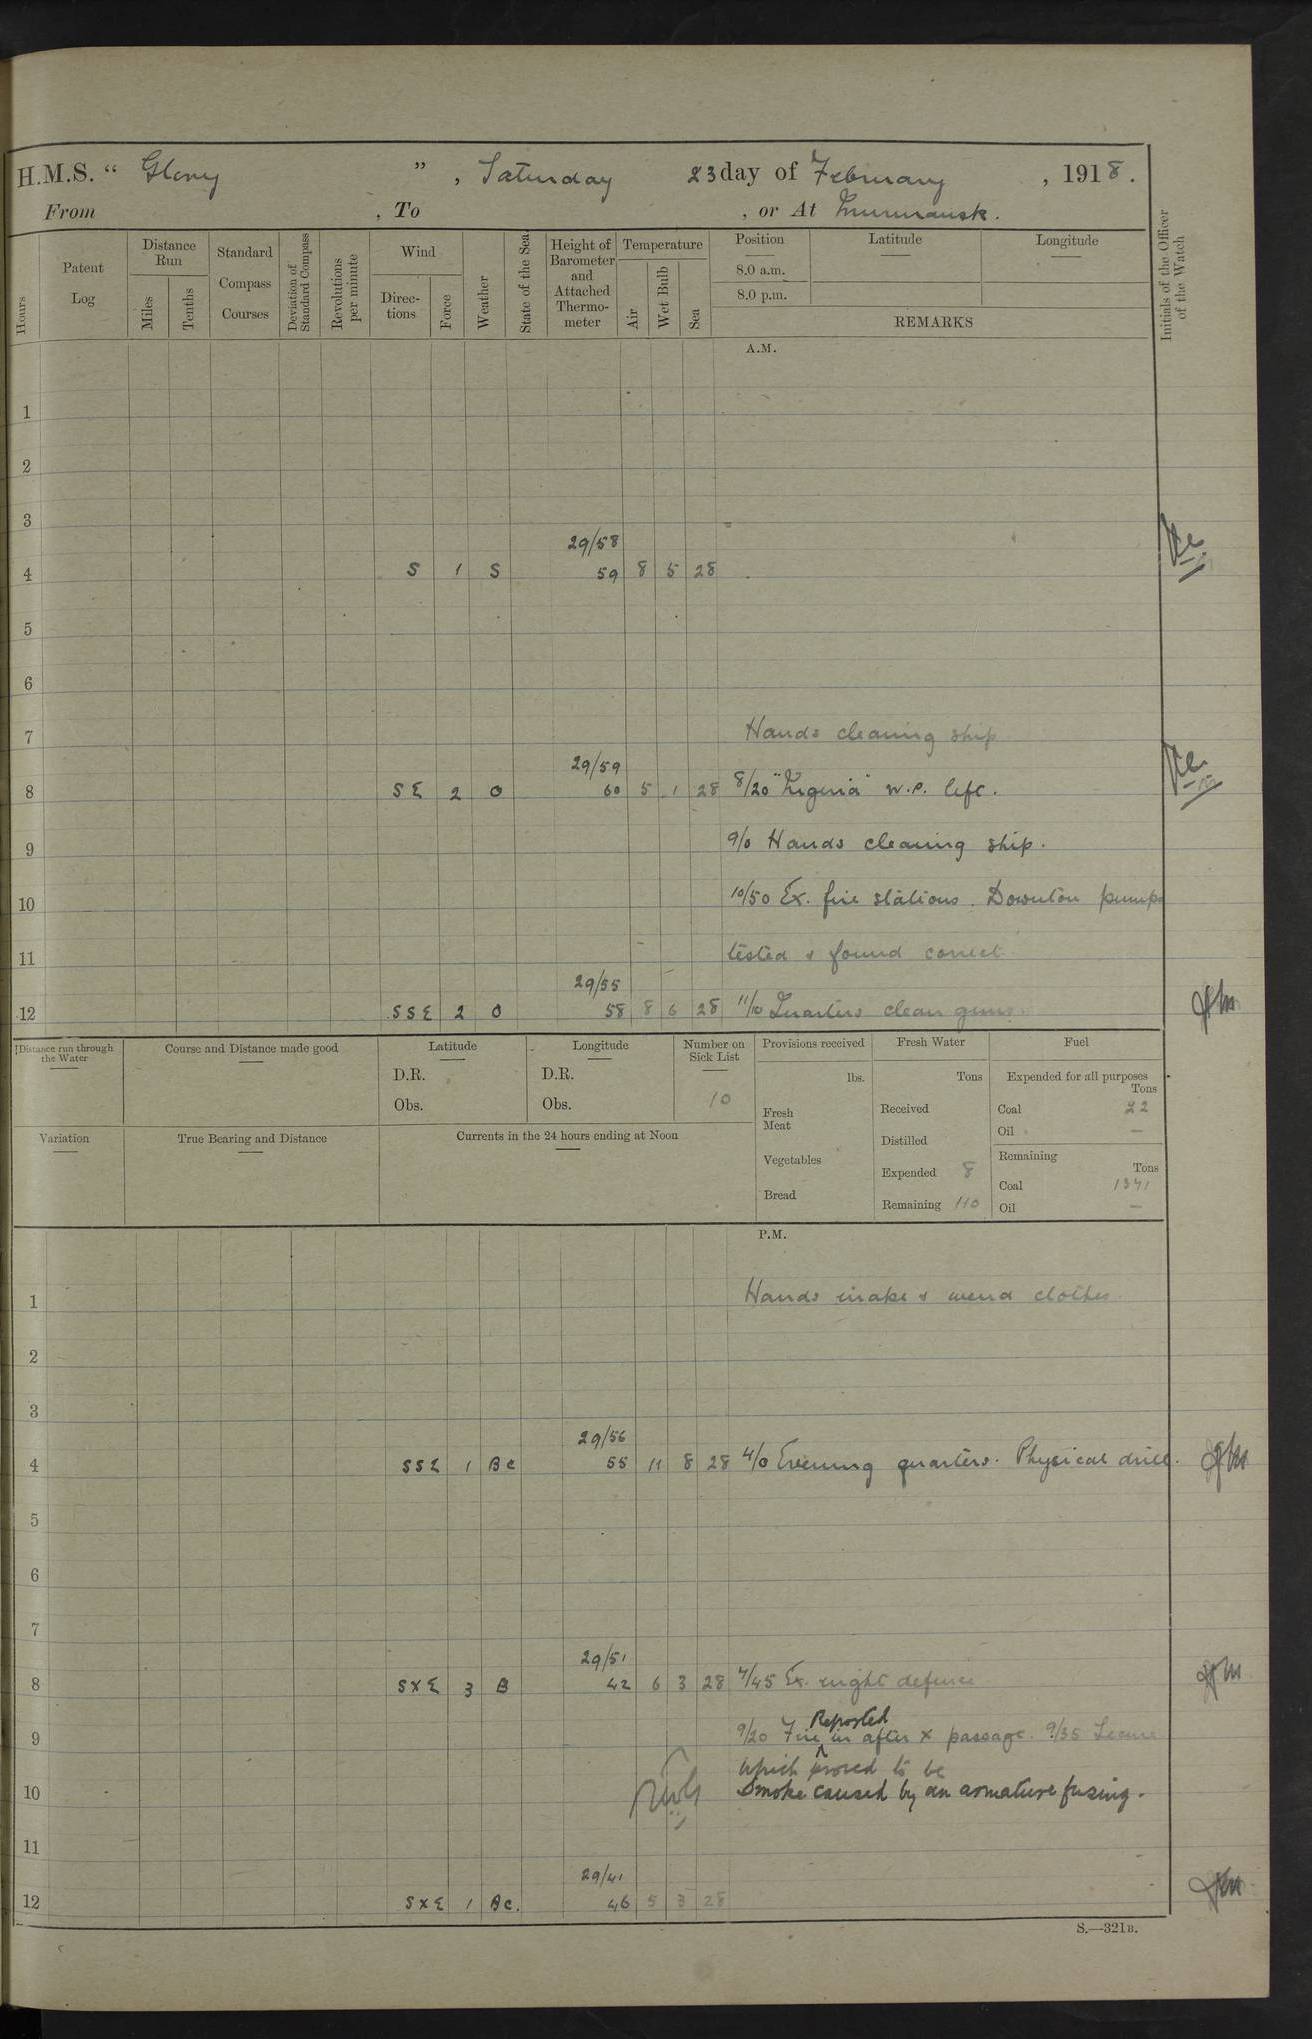 H.M.S. “ Glory ” , Saturday 23 day of February , 1918.
From , To , or At Murmansk.
Hours
Patent Log
Distance Run
Miles
Tenths
Standard Compass Courses
Deviation of Standard Compass
Revolutions per minute
Wind
Directions
Force
Weather
State of the Sea
Height of Barometer and Attached Thermometer
Temperature
Air
Wet Bulb
Sea
Position
8.0 a.m.
8.0 p.m.
Latitude
Longitude
REMARKS
Initials of the Officer of the Watch
A.M.
1
2
3
29/58
4 S 1 S 59 8 5 28
5
6
7 Hands cleaning ship
29/59
8 SE 2 O 60 5 1 28 8/20 " " W.P. left.
9 9/0 Hands cleaning ship.
10 10/50 Ex. fire stations. Downton pumps
11 tested & found correct
29/55
12 SSE 2 O 58 8 6 28 11/10 Quarters clean guns.
Distance run through the Water
Course and Distance made good
Latitude
D.R.
Obs.
Longitude
D.R.
Obs.
Number on Sick List
10
Provisions received
lbs.
Fresh Meat
Vegetables
Bread
Fresh Water
Tons
Received
Distilled
Expended 8
Remaining 110
Fuel
Expended for all purposes
Tons
Coal 22
Oil —
Remaining
Tons
Coal 1341
Oil —
Variation
True Bearing and Distance
Currents in the 24 hours ending at Noon
P.M.
1 Hands make & mend clothes.
2
3
29/56
4 SSE 1 BC 55 11 8 28 4/0 Evening quarters. Physical drill.
5
6
7
29/51
8 SXE 3 B 42 6 3 28 7/45 Ex. night defence
Reported
9 9/20 Fire in after X passage. 9/35 Secure
which proved to be
10 Smoke caused by an armature fusing.
11
29/41
12 SXE 1 BC. 46 5 3 28
S.—321B.